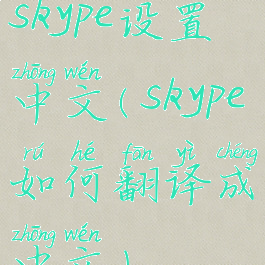 skype设置
zhōng wén
中文(skype
rú hé fān yì chéng
如何翻译成
zhōng wén
中文)